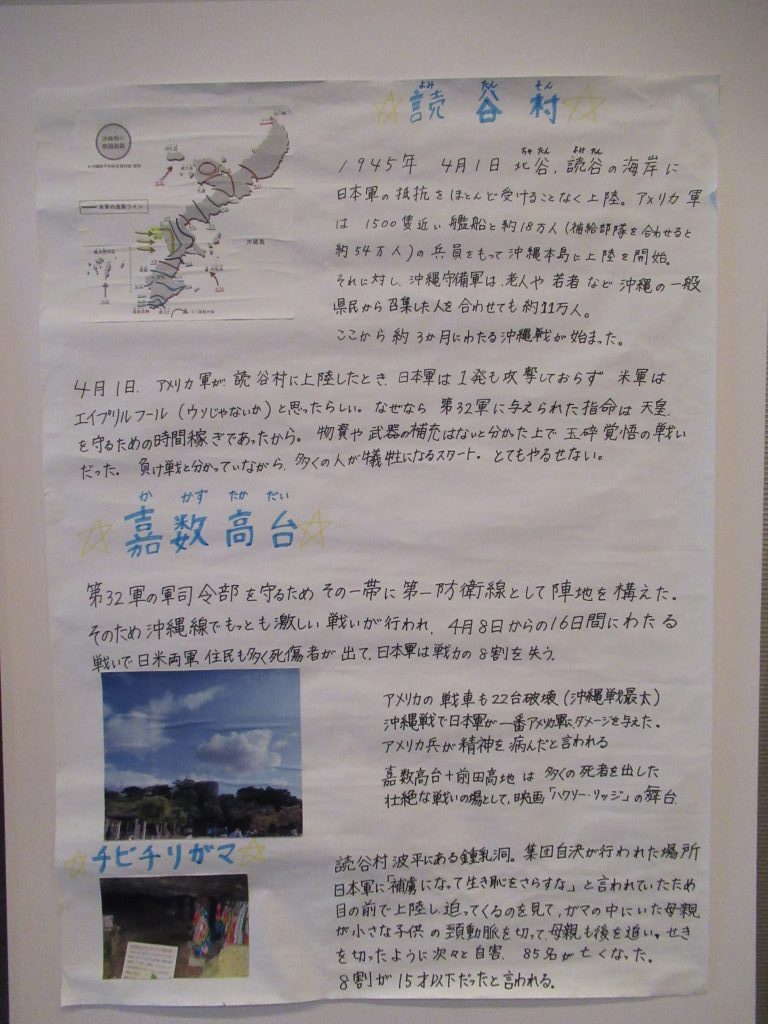 ☆読谷村☆
よみ たん そん
1945年 4月1日 北谷、読谷の海岸に
ちゃたん よみたん
日本軍の抵抗をほとんど受けることなく上陸。アメリカ軍
は 1500隻近い艦船と約18万人(補給部隊を合わせると
約54万人)の兵員をもって沖縄本島に上陸を開始。
それに対し、沖縄守備軍は、老人や若者など沖縄の一般
県民から召集した人を合わせても約11万人。
ここから約3か月にわたる沖縄戦が始まった。
沖縄島
4月1日、アメリカ軍が読谷村に上陸したとき、日本軍は1発も攻撃しておらず 米軍は
エイプリルフール(ウソじゃないか)と思ったらしい。なぜなら 第32軍に与えられた指命は天皇
を守るための時間稼ぎであったから。物資や武器の補充はないと分かった上で玉砕覚悟の戦い
だった。負け戦と分かっていながら、多くの人が犠牲になるスタート。とてもやるせない。
か かず たか だい
☆嘉数高台☆
第32軍の軍司令部を守るためその一帯に第一防衛線として陣地を構えた。
そのため沖縄線でもっとも激しい戦いが行われ、4月8日からの16日間にわたる
戦いで日米両軍、住民も多く死傷者が出て、日本軍は戦力の8割を失う。
アメリカの戦車も22台破壊(沖縄戦最大)
沖縄戦で日本軍が一番アメリカ軍にダメージを与えた。
アメリカ兵が精神を病んだと言われる
嘉数高台+前田高地は多くの死者を出した
壮絶な戦いの場として、映画「ハクソー・リッジ」の舞台
☆チビチリガマ☆
読谷村波平にある鍾乳洞。集団自決が行われた場所
日本軍に「捕虜になって生き恥をさらすな」と言われていたため
目の前で上陸し迫ってくるのを見て、ガマの中にいた母親
が小さな子供の頸動脈を切って、母親も後を追い。せき
を切ったように次々と自害、85名が亡くなった。
8割が15才以下だったと言われる。